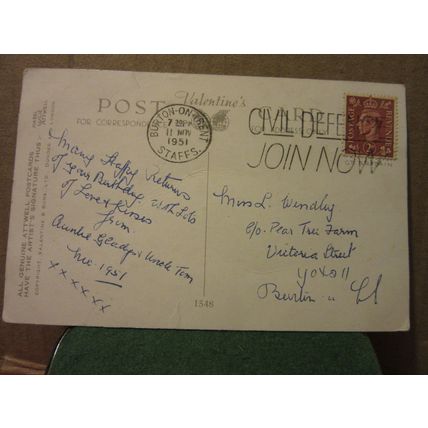 POST CARD
Valentine's
FOR CORRESPONDENCE
FOR ADDRESS
BURTON-ON-TRENT
11 NOV
1951
STAFFS.
CIVIL DEFENCE
JOIN NOW
POSTAGE REVENUE
Many Happy Returns
of your Birthday with Lots
of Love & Kisses
from
Auntie Gladys & Uncle Tom
1951
x x x x x x
Miss L. Wendly
c/o. Pear Tree Farm
Victoria Street
Yoxall
Burton
1548
ALL GENUINE ATTWELL POSTCARDS
HAVE THE ARTIST'S SIGNATURE THUS -
COPYRIGHT, VALENTINE & SONS LTD. DUNDEE